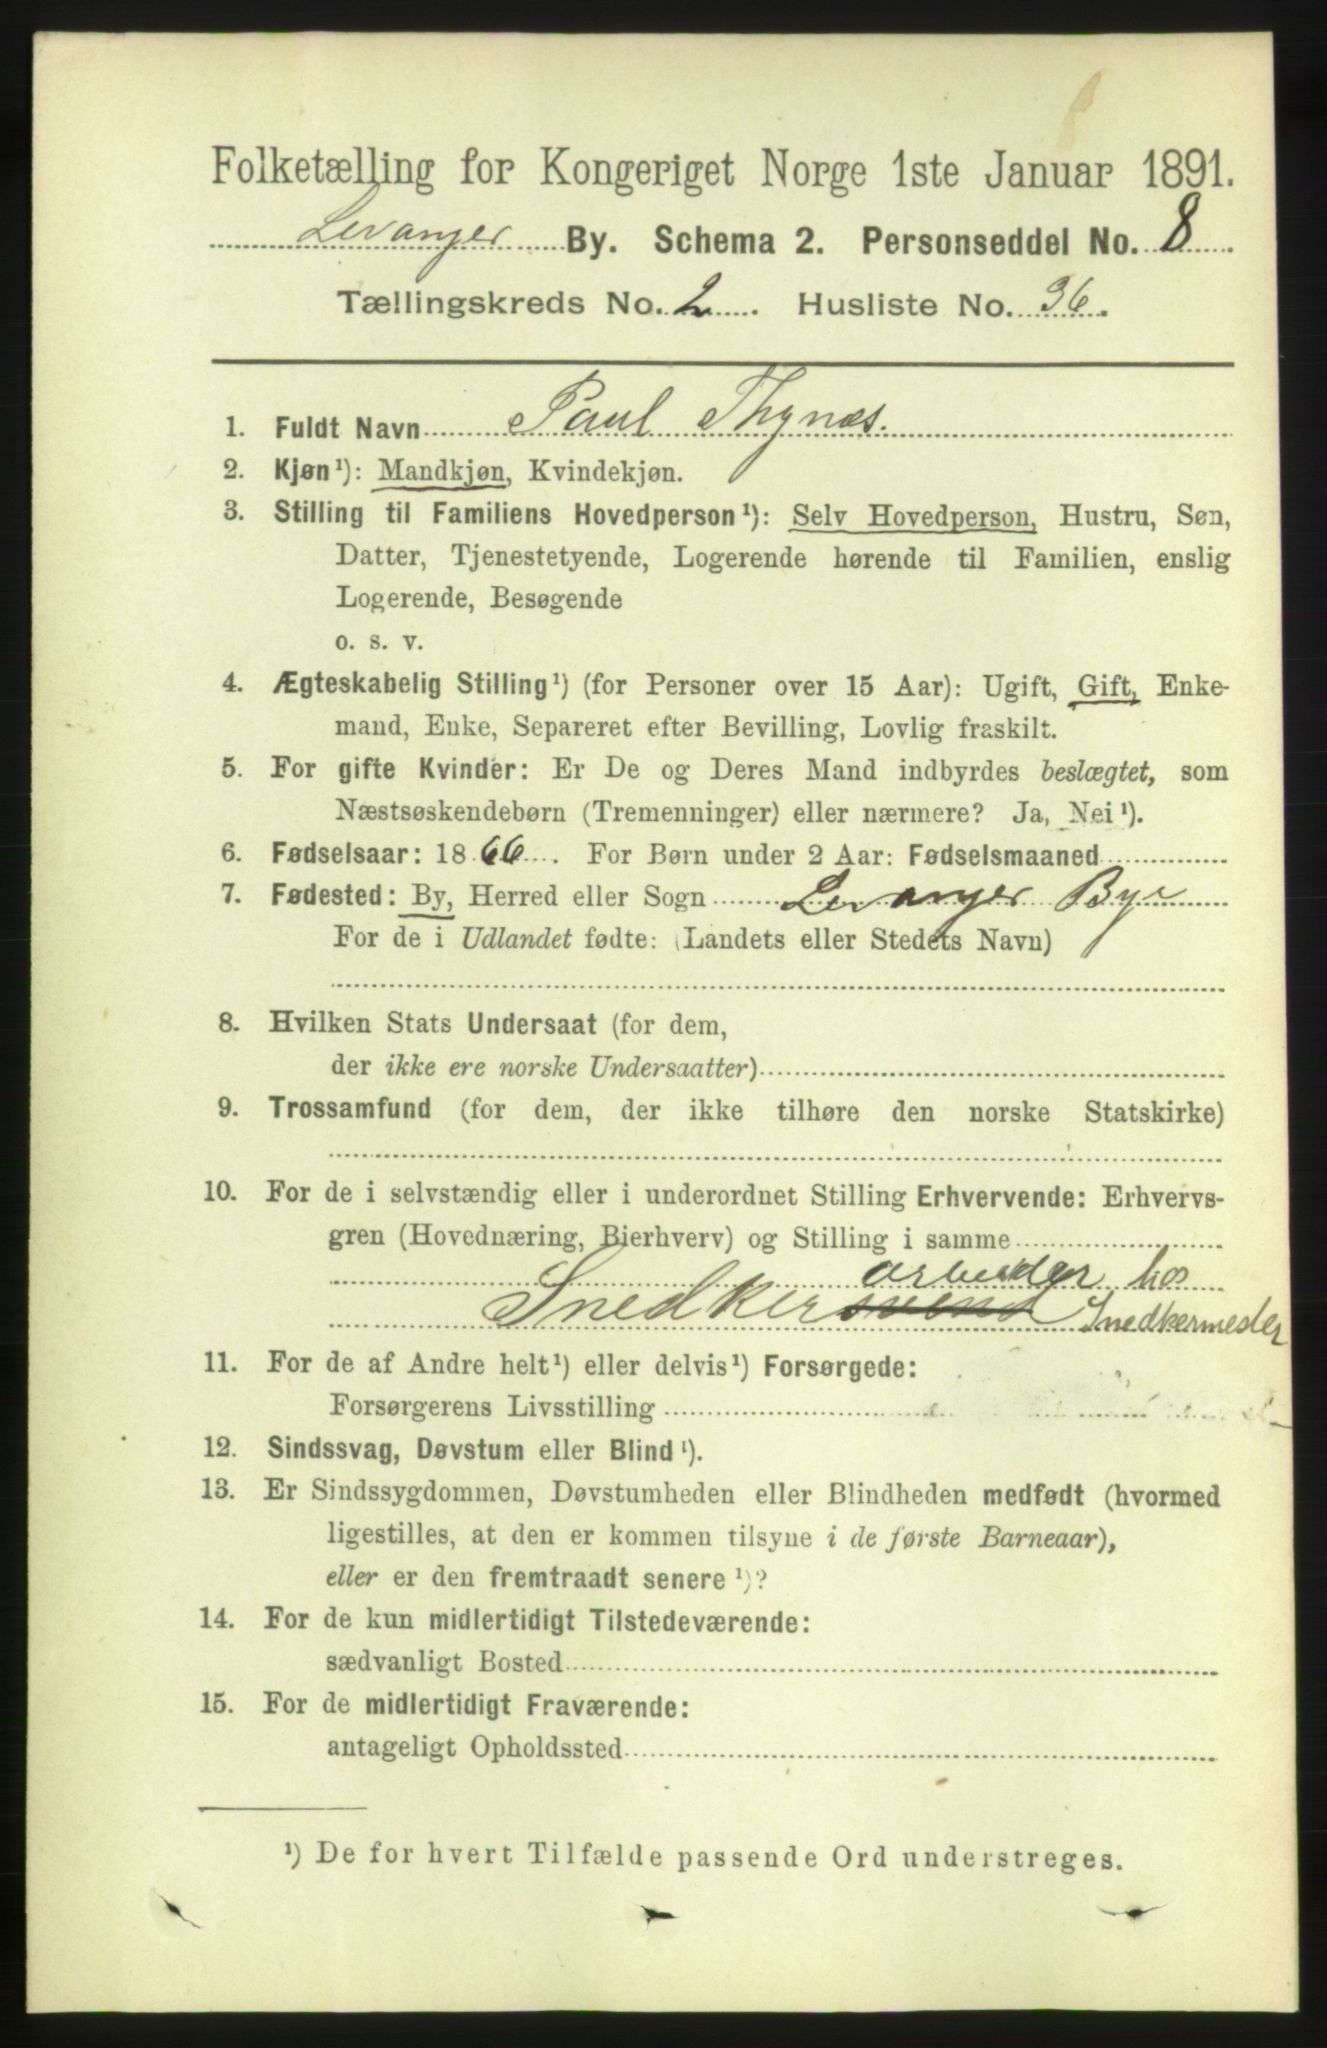 Folketælling for Kongeriget Norge 1ste Januar 1891.
Levanger By. Schema 2. Personseddel No. 8
Tællingskreds No. 2. Husliste No. 36.
1. Fuldt Navn Paul Thynæs.
2. Kjøn¹): Mandkjøn, Kvindekjøn.
3. Stilling til Familiens Hovedperson¹): Selv Hovedperson, Hustru, Søn,
Datter, Tjenestetyende, Logerende hørende til Familien, enslig
Logerende, Besøgende
o. s. v.
4. Ægteskabelig Stilling¹) (for Personer over 15 Aar): Ugift, Gift, Enke-
mand, Enke, Separeret efter Bevilling, Lovlig fraskilt.
5. For gifte Kvinder: Er De og Deres Mand indbyrdes beslægtet, som
Næstsøskendebørn (Tremenninger) eller nærmere? Ja, Nei¹).
6. Fødselsaar: 1866. For Børn under 2 Aar: Fødselsmaaned
7. Fødested: By, Herred eller Sogn Levanger Bye
For de i Udlandet fødte: (Landets eller Stedets Navn)
8. Hvilken Stats Undersaat (for dem,
der ikke ere norske Undersaatter)
9. Trossamfund (for dem, der ikke tilhøre den norske Statskirke)
10. For de i selvstændig eller i underordnet Stilling Erhvervende: Erhvervs-
gren (Hovednæring, Bierhverv) og Stilling i samme
arbeider hos
Snedkersvend Snedkermester
11. For de af Andre helt¹) eller delvis¹) Forsørgede:
Forsørgerens Livsstilling
12. Sindssvag, Døvstum eller Blind¹).
13. Er Sindssygdommen, Døvstumheden eller Blindheden medfødt (hvormed
ligestilles, at den er kommen tilsyne i de første Barneaar),
eller er den fremtraadt senere¹)?
14. For de kun midlertidigt Tilstedeværende:
sædvanligt Bosted
15. For de midlertidigt Fraværende:
antageligt Opholdssted
¹) De for hvert Tilfælde passende Ord understreges.